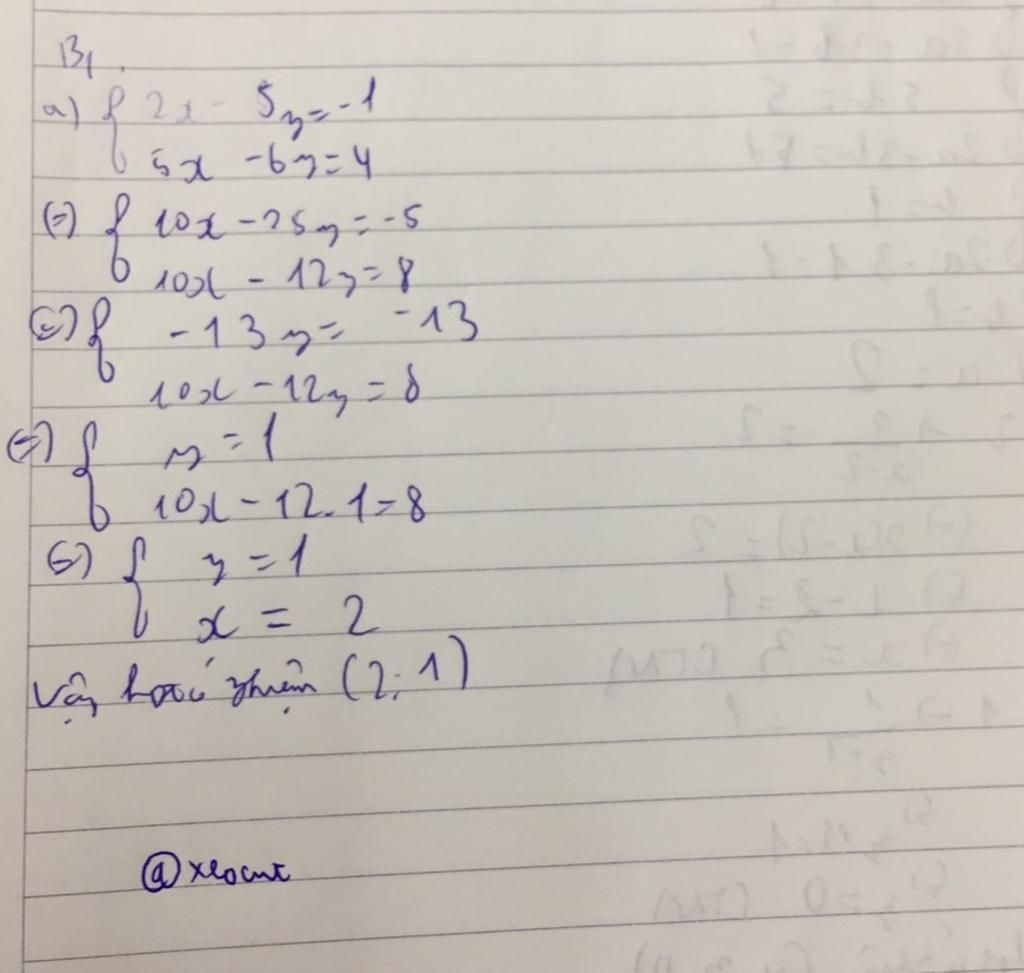 B1.
a) { 2x - 5y = -1
5x - 6y = 4
(=) { 10x - 25y = -5
10x - 12y = 8
(=) { -13y = -13
10x - 12y = 8
(=) { y = 1
10x - 12.1 = 8
(=) { y = 1
x = 2
Vậy có nghiệm (2; 1)
@xlocnt